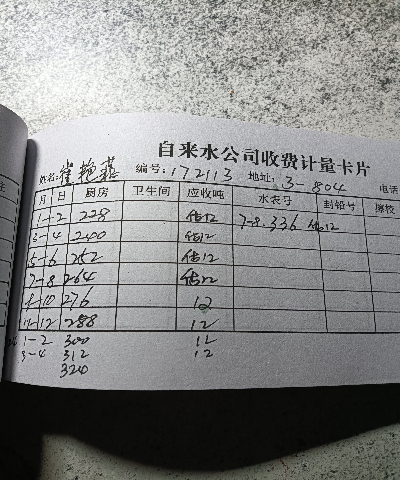 自来水公司收费计量卡片
姓名:崔艳 编号:172113 地址:3-804 电话
月 日 厨房 卫生间 应收吨 水表字 封铅号
1-2 228 估12 7-8.336 估12
3-4 240 估12
5-6 252 估12
7-8 264 估12
9-10 276 12
11-12 288 12
1-2 300 12
3-4 312 12
320